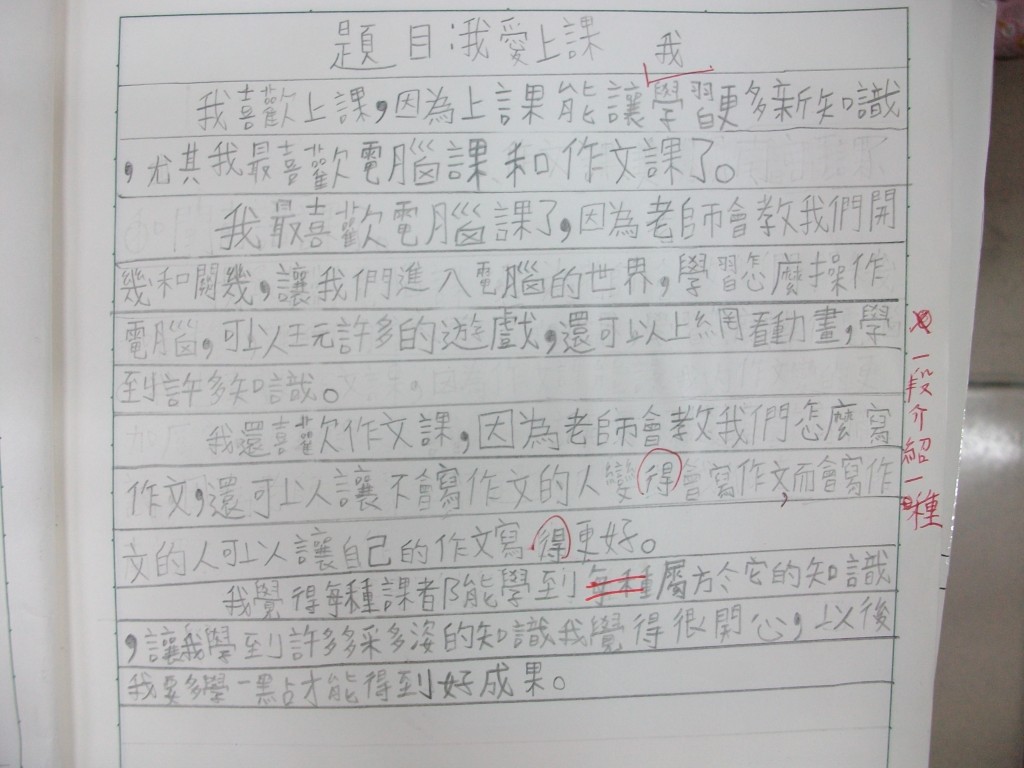 題目：我愛上課
我
我喜歡上課，因為上課能讓學習更多新知識
，尤其我最喜歡電腦課和作文課了。
我最喜歡電腦課了，因為老師會教我們開
幾和關幾，讓我們進入電腦的世界，學習怎麼操作
電腦，可以玩許多的遊戲，還可以上網看動畫，學
到許多知識。
我還喜歡作文課，因為老師會教我們怎麼寫
作文，還可以讓不會寫作文的人變得會寫作文，而會寫作
文的人可以讓自己的作文寫得更好。
我覺得每種課都能學到每種屬於它的知識
，讓我學到許多多采多姿的知識我覺得很開心，以後
我要多學一點才能得到好成果。
一段介紹一種